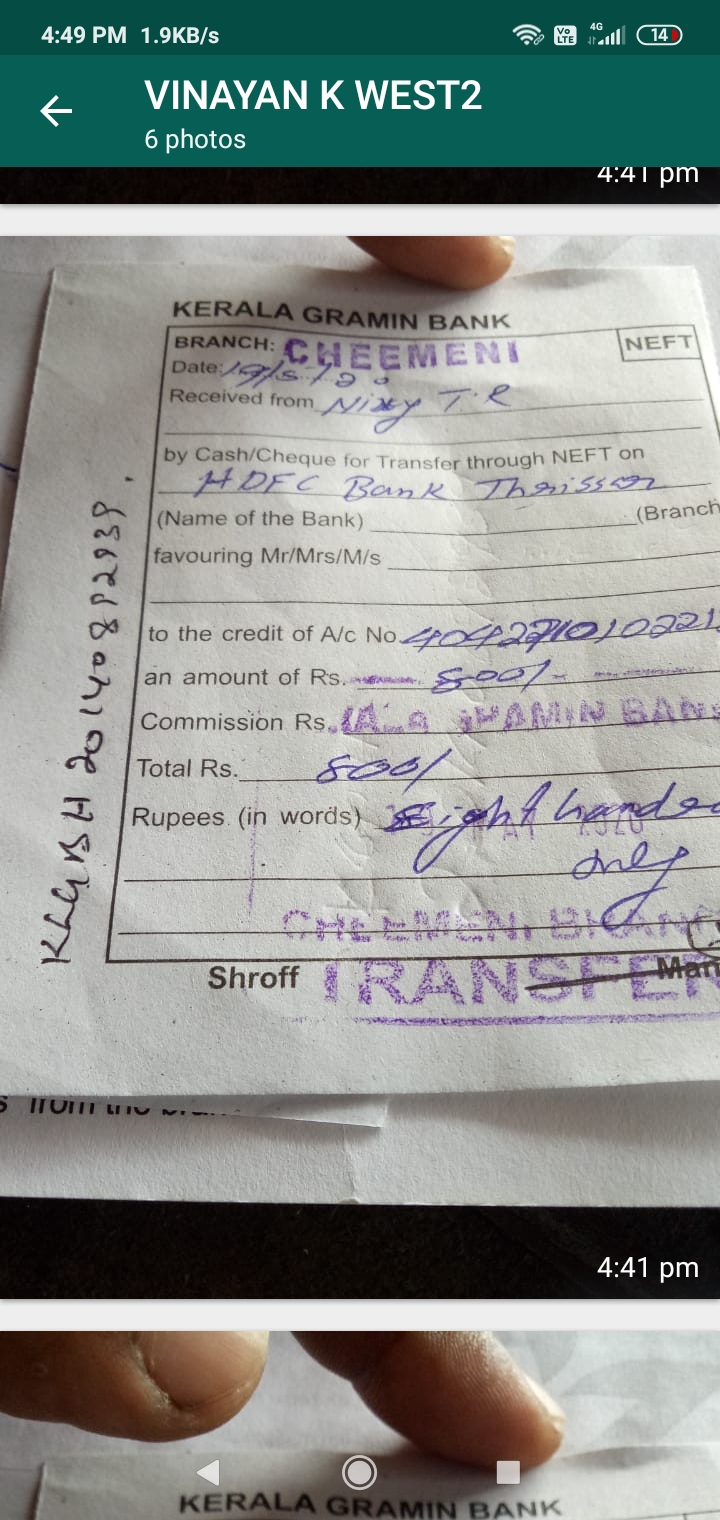 4:49 PM 1.9KB/s
Vo LTE 4G 14
VINAYAN K WEST2
6 photos
4:41 pm
KERALA GRAMIN BANK
BRANCH: CHEEMENI
NEFT
Date: 19/5/20
Received from Nixy T.R
by Cash/Cheque for Transfer through NEFT on
HDFC Bank Thrissur
(Name of the Bank) (Branch
favouring Mr/Mrs/M/s
to the credit of A/c No
an amount of Rs. 800/-
Commission Rs.
GRAMIN BAN
Total Rs. 800/
Rupees (in words) Eight
only
CHEEMENI BRAN
Shroff
TRANSFER
Man
from the
4:41 pm
KERALA GRAMIN BANK